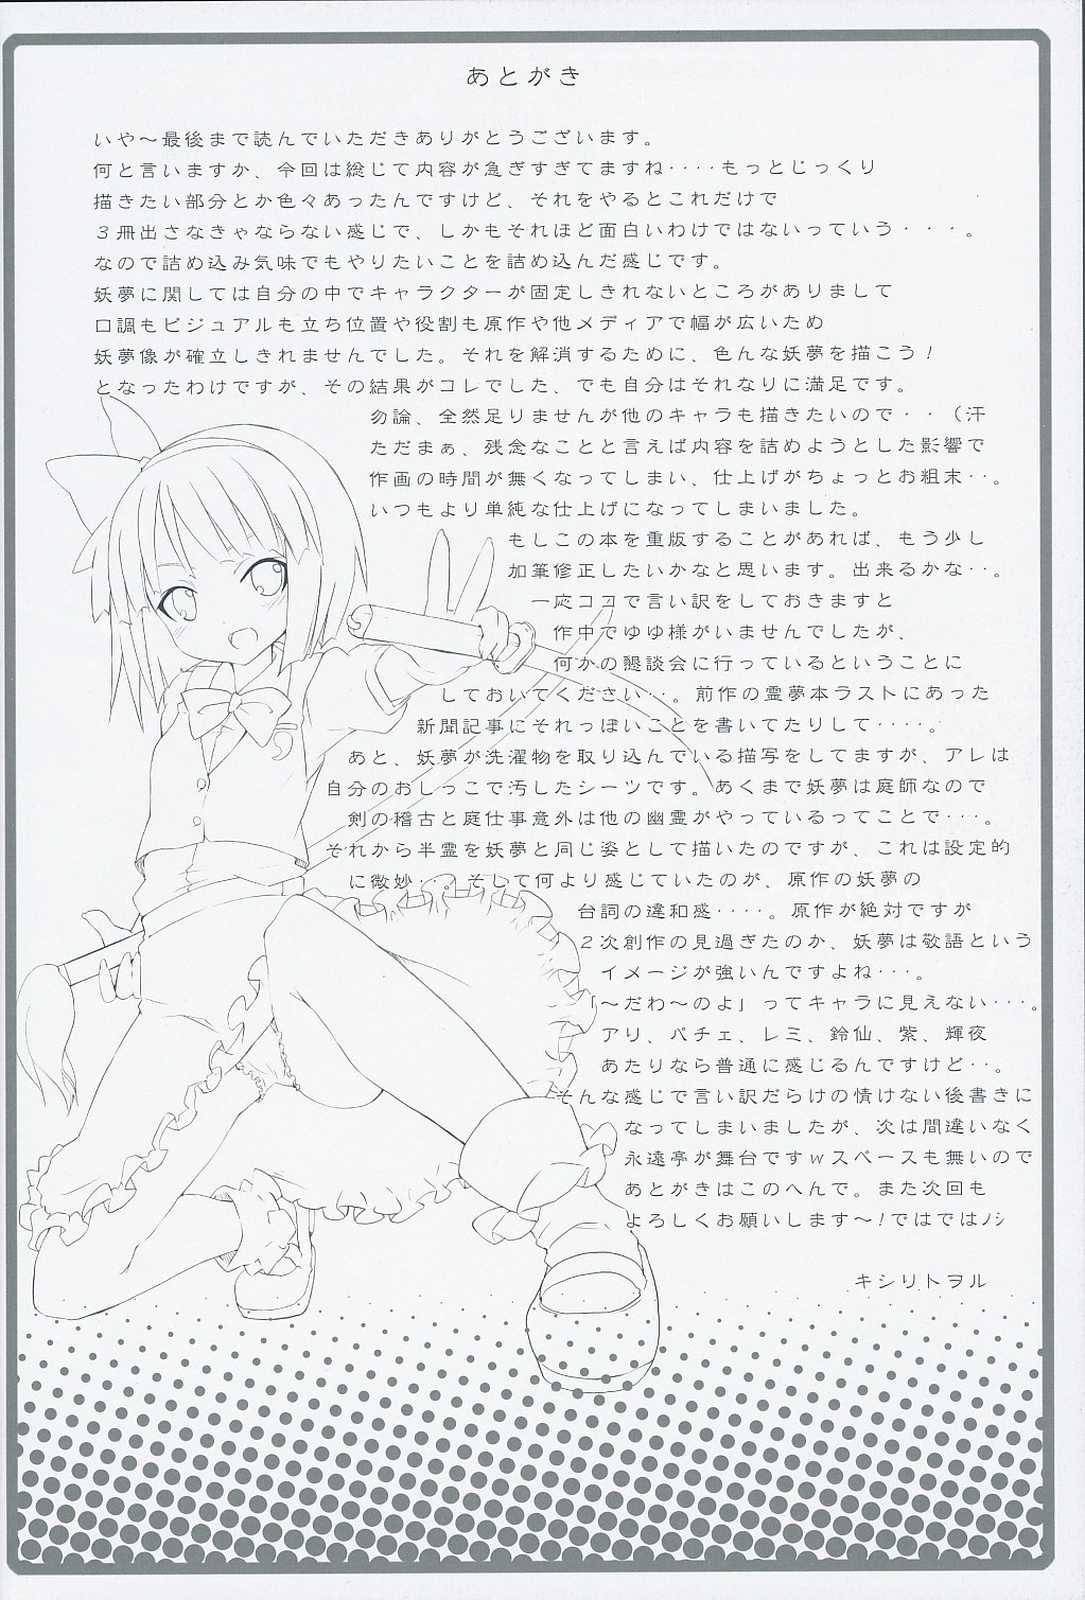 あとがき
いや～最後まで読んでいただきありがとうございます。
何と言いますか、今回は総じて内容が急ぎすぎてますね‥‥もっとじっくり
描きたい部分とか色々あったんですけど、それをやるとこれだけで
３冊出さなきゃならない感じで、しかもそれほど面白いわけではないっていう・・・。
なので詰め込み気味でもやりたいことを詰め込んだ感じです。
妖夢に関しては自分の中でキャラクターが固定しきれないところがありまして
口調もビジュアルも立ち位置や役割も原作や他メディアで幅が広いため
妖夢像が確立しきれませんでした。それを解消するために、色んな妖夢を描こう！
となったわけですが、その結果がコレでした、でも自分はそれなりに満足です。
勿論、全然足りませんが他のキャラも描きたいので・・（汗
ただまぁ、残念なことと言えば内容を詰めようとした影響で
作画の時間が無くなってしまい、仕上げがちょっとお粗末・・。
いつもより単純な仕上げになってしまいました。
もしこの本を重版することがあれば、もう少し
加筆修正したいかなと思います。出来るかな・・。
一応ココで言い訳をしておきますと
作中でゆゆ様がいませんでしたが、
何かの懇談会に行っているということに
しておいてください・・。前作の霊夢本ラストにあった
新聞記事にそれっぽいことを書いてたりして・・・・。
あと、妖夢が洗濯物を取り込んでいる描写をしてますが、アレは
自分のおしっこで汚したシーツです。あくまで妖夢は庭師なので
剣の稽古と庭仕事意外は他の幽霊がやっているってことで・・・。
それから半霊を妖夢と同じ姿として描いたのですが、これは設定的
に微妙・・・？そして何より感じていたのが、原作の妖夢の
台詞の違和感・・・・。原作が絶対ですが
２次創作の見過ぎたのか、妖夢は敬語という
イメージが強いんですよね・・・。
「～だわ～のよ」ってキャラに見えない・・・。
アリ、パチェ、レミ、鈴仙、紫、輝夜
あたりなら普通に感じるんですけど・・。
そんな感じで言い訳だらけの情けない後書きに
なってしまいましたが、次は間違いなく
永遠亭が舞台ですｗスペースも無いので
あとがきはこのへんで。また次回も
よろしくお願いします～！ではではﾉｼ
キシリトヲル